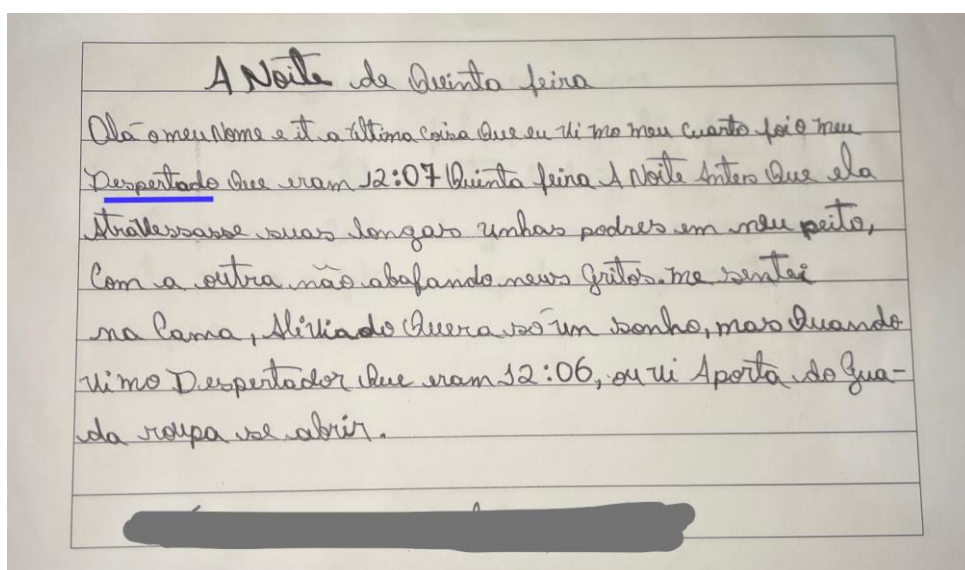 A Noite de Quinta feira
Olá o meu Nome e it a última coisa Que eu Vi mo meu Cuarto foi o meu
Despertado Que eram 12:07 Quinta feira A Noite Antes Que ela
Atravessasse suas longas unhas podres em meu peito,
Com a outra não abafando meus gritos. me sentei
na Cama, Aliviado Quera só um sonho, mas Quando
vi mo Despertador Que eram 12:06, ou vi Aporta do Gua-
da roupa se abrir.